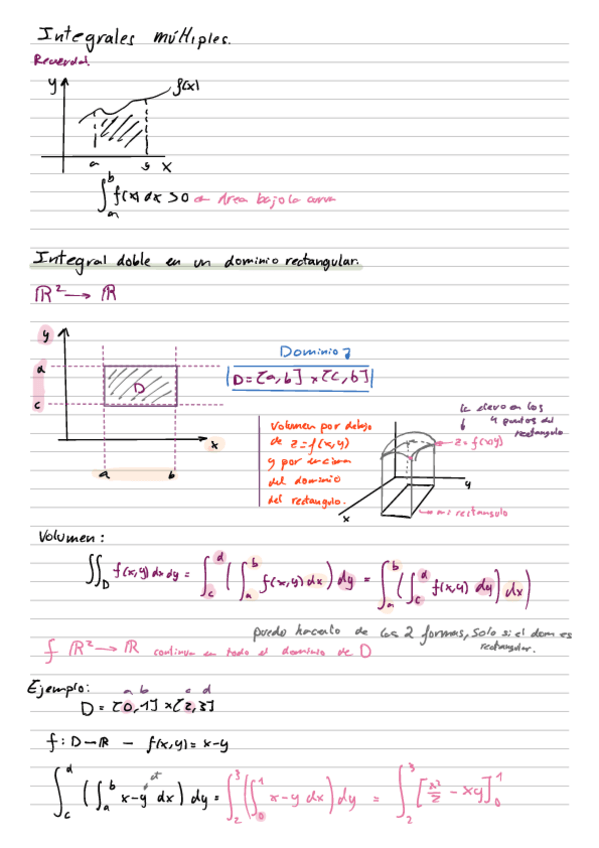 Integrales múltiples.
Recuerda!
y
f(x)
a
x
∫_a^b f(x) dx > 0 → Area bajo la curva
Integral doble en un dominio rectangular.
ℝ² → ℝ
y
d
D
c
x
a b
Dominio
D = [a,b] x [c,b]
Volumen por debajo
de z=f(x,y)
y por encima
del dominio
del rectangulo.
lo elevo en los
4 puntos del
rectangulo
z = f(x,y)
y
x
mi rectangulo
Volumen:
∬_D f(x,y) dx dy = ∫_c^d (∫_a^b f(x,y) dx) dy = ∫_a^b (∫_c^d f(x,y) dy) dx
puedo hacerlo de las 2 formas, solo si el dom es
rectangular.
f ℝ² → ℝ continua en todo el dominio de D
Ejemplo:
a b c d
D = [0,1] x [2,3]
f: D → ℝ – f(x,y) = x-y
∫_c^d (∫_a^b x-y dx) dy = ∫_2^3 (∫_0^1 x-y dx) dy = ∫_2^3 [x²/2 - xy]_0^1